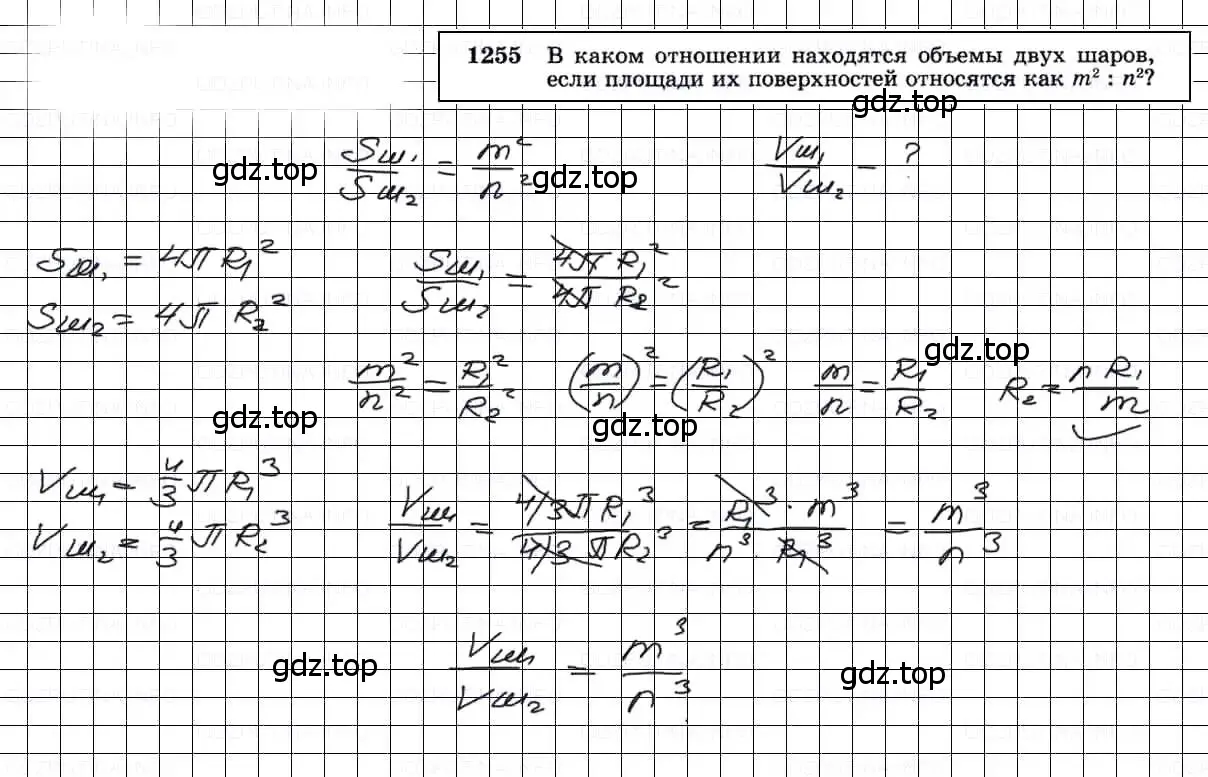 1255 В каком отношении находятся объемы двух шаров,
если площади их поверхностей относятся как m² : n²?
gdz.top
Sш₁/Sш₂ = m²/n² gdz.top Vш₁/Vш₂ - ?
gdz.top
Sш₁ = 4π R₁² Sш₁/Sш₂ = 4π R₁²/4π R₂²
Sш₂ = 4π R₂²
gdz.top
m²/n² = R₁²/R₂² (m/n)² = (R₁/R₂)² m/n = R₁/R₂ R₂ = n R₁/m
gdz.top gdz.top
Vш₁ = 4/3 π R₁³ Vш₁/Vш₂ = 4/3 π R₁³/4/3 π R₂³ = R₁³ · m³/n³ · R₁³ = m³/n³
Vш₂ = 4/3 π R₂³
gdz.top Vш₁/Vш₂ = m³/n³ gdz.top